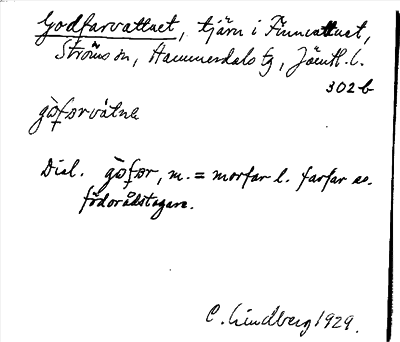 Godfarvattnet, tjärn i Finnvattnet,
Ströms sn, Hammerdals tg, Jämtl. l.
302 b
gòfǫrvátnǝ
Dial. gòfǫr, m. = morfar l. farfar
födorådstagare.
C. Lindberg 1929.